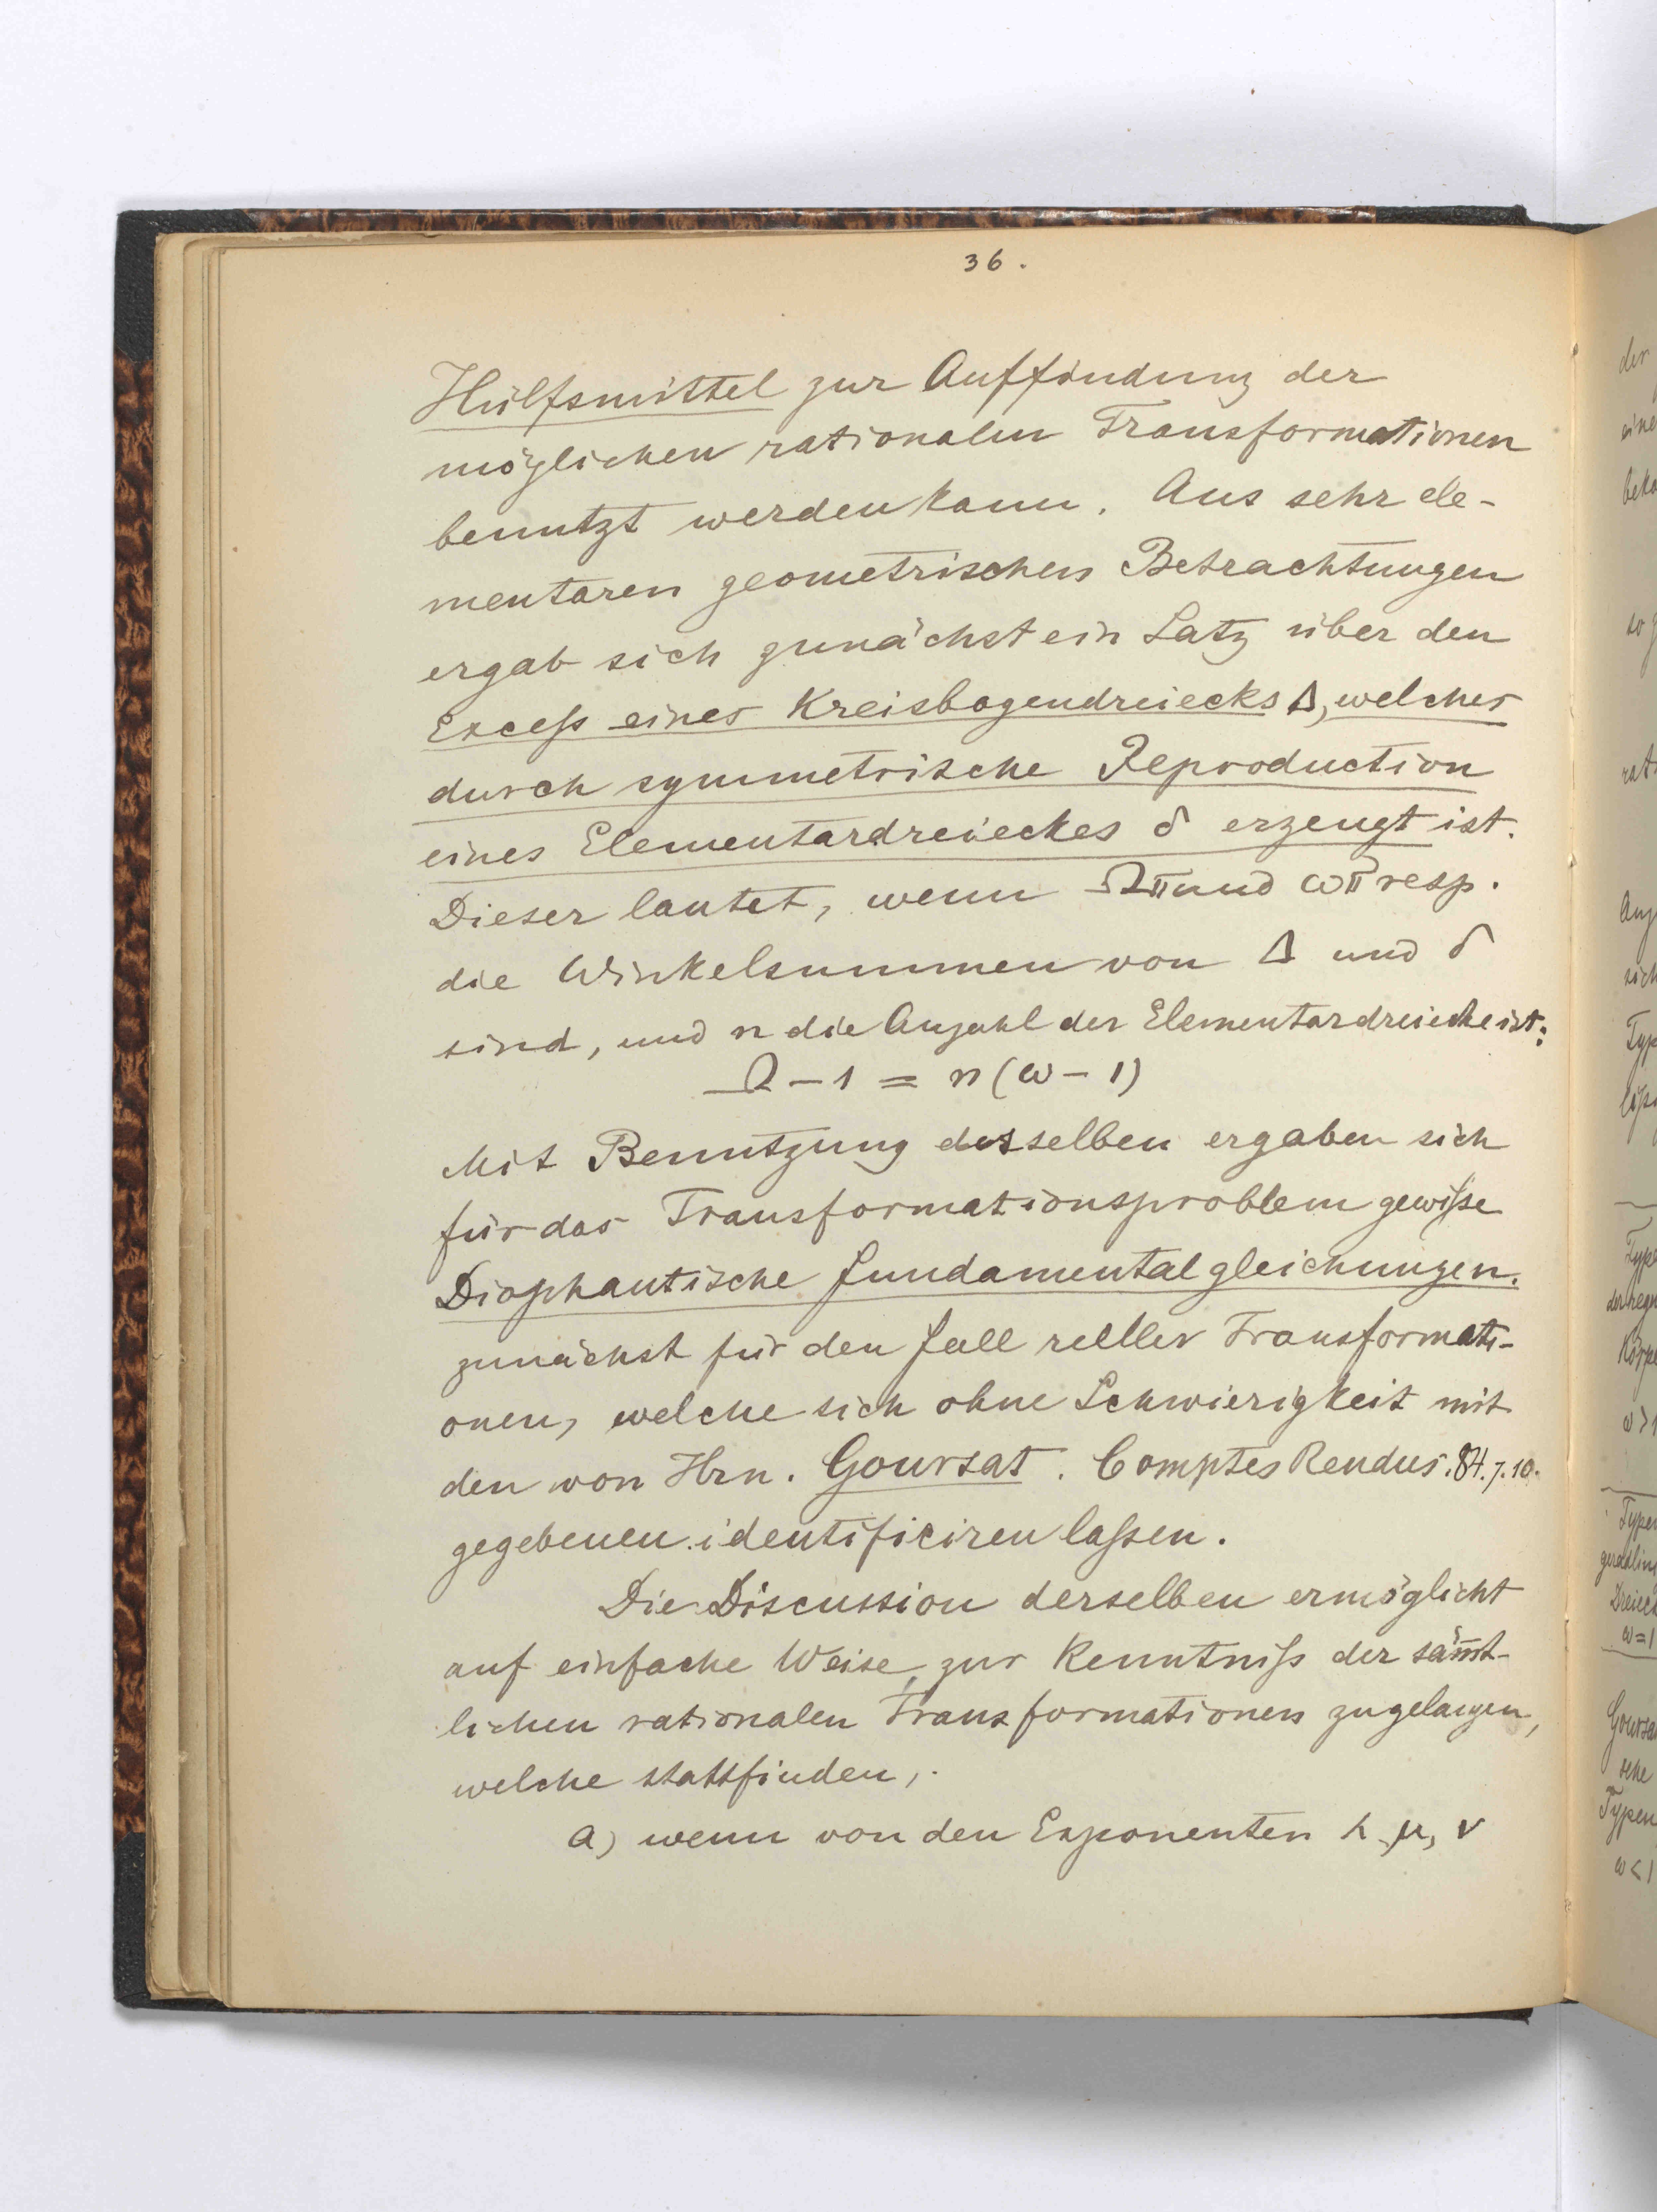 36.
Hülfsmittel zur Auffindung der
möglichen rationalen Transformationen
benutzt werden kann. Aus sehr ele-
mentaren geometrischen Betrachtungen
ergab sich zunächst ein Satz über den
Exceß eines Kreisbogendreiecks Δ, welches
durch symmetrische Reproduction
eines Elementardreieckes δ erzeugt ist.
Dieser lautet, wenn Ωπ und ωπ resp.
die Winkelsummen von Δ und δ
sind, und n die Anzahl der Elementardreiecke ist:
Ω – 1 = n (ω – 1)
Mit Benutzung desselben ergaben sich
für das Transformationsproblem gewiße
Diophantische Fundamentalgleichungen.
zunächst für den Fall reeller Transformati-
onen, welche sich ohne Schwierigkeit mit
den von Hrn. Goursat. Comptes Rendus. 84. 7. 10.
gegebenen identificiren laßen.
Die Discussion derselben ermöglicht
auf einfache Weise, zur Kenntniß der säm̄t-
lichen rationalen Transformationen zu gelangen,
welche stattfinden,
a) wenn von den Exponenten λ, μ, ν
der
eine
beka
so g
rat
Ang
sich
Typ
Type
der regu
Körpe
ω > 1
Typen
geradlin
Dreieck
ω = 1
Goursa
sche
Typen
ω < 1